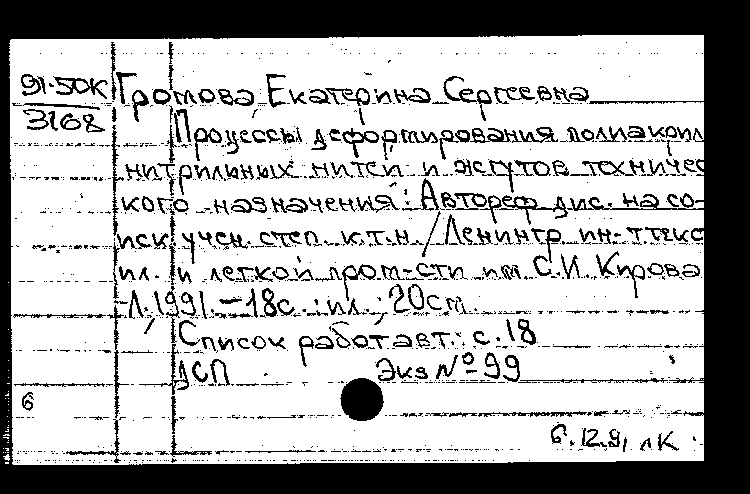 91-50К
3168
Громова Екатерина Сергеевна
Процессы деформирования полиакрил
нитрильных нитей и жгутов техничес
кого назначения: Автореф дис. на со-
иск. учен. степ. к.т.н. / Ленингр ин-т текс
ил. и легкой пром-сти им. С.И. Кирова
-Л. 1991. - 18с. : ил. ; 20см.
Список работ авт.: с. 18
ДСП Экз № 99
6
6.12.91 лК